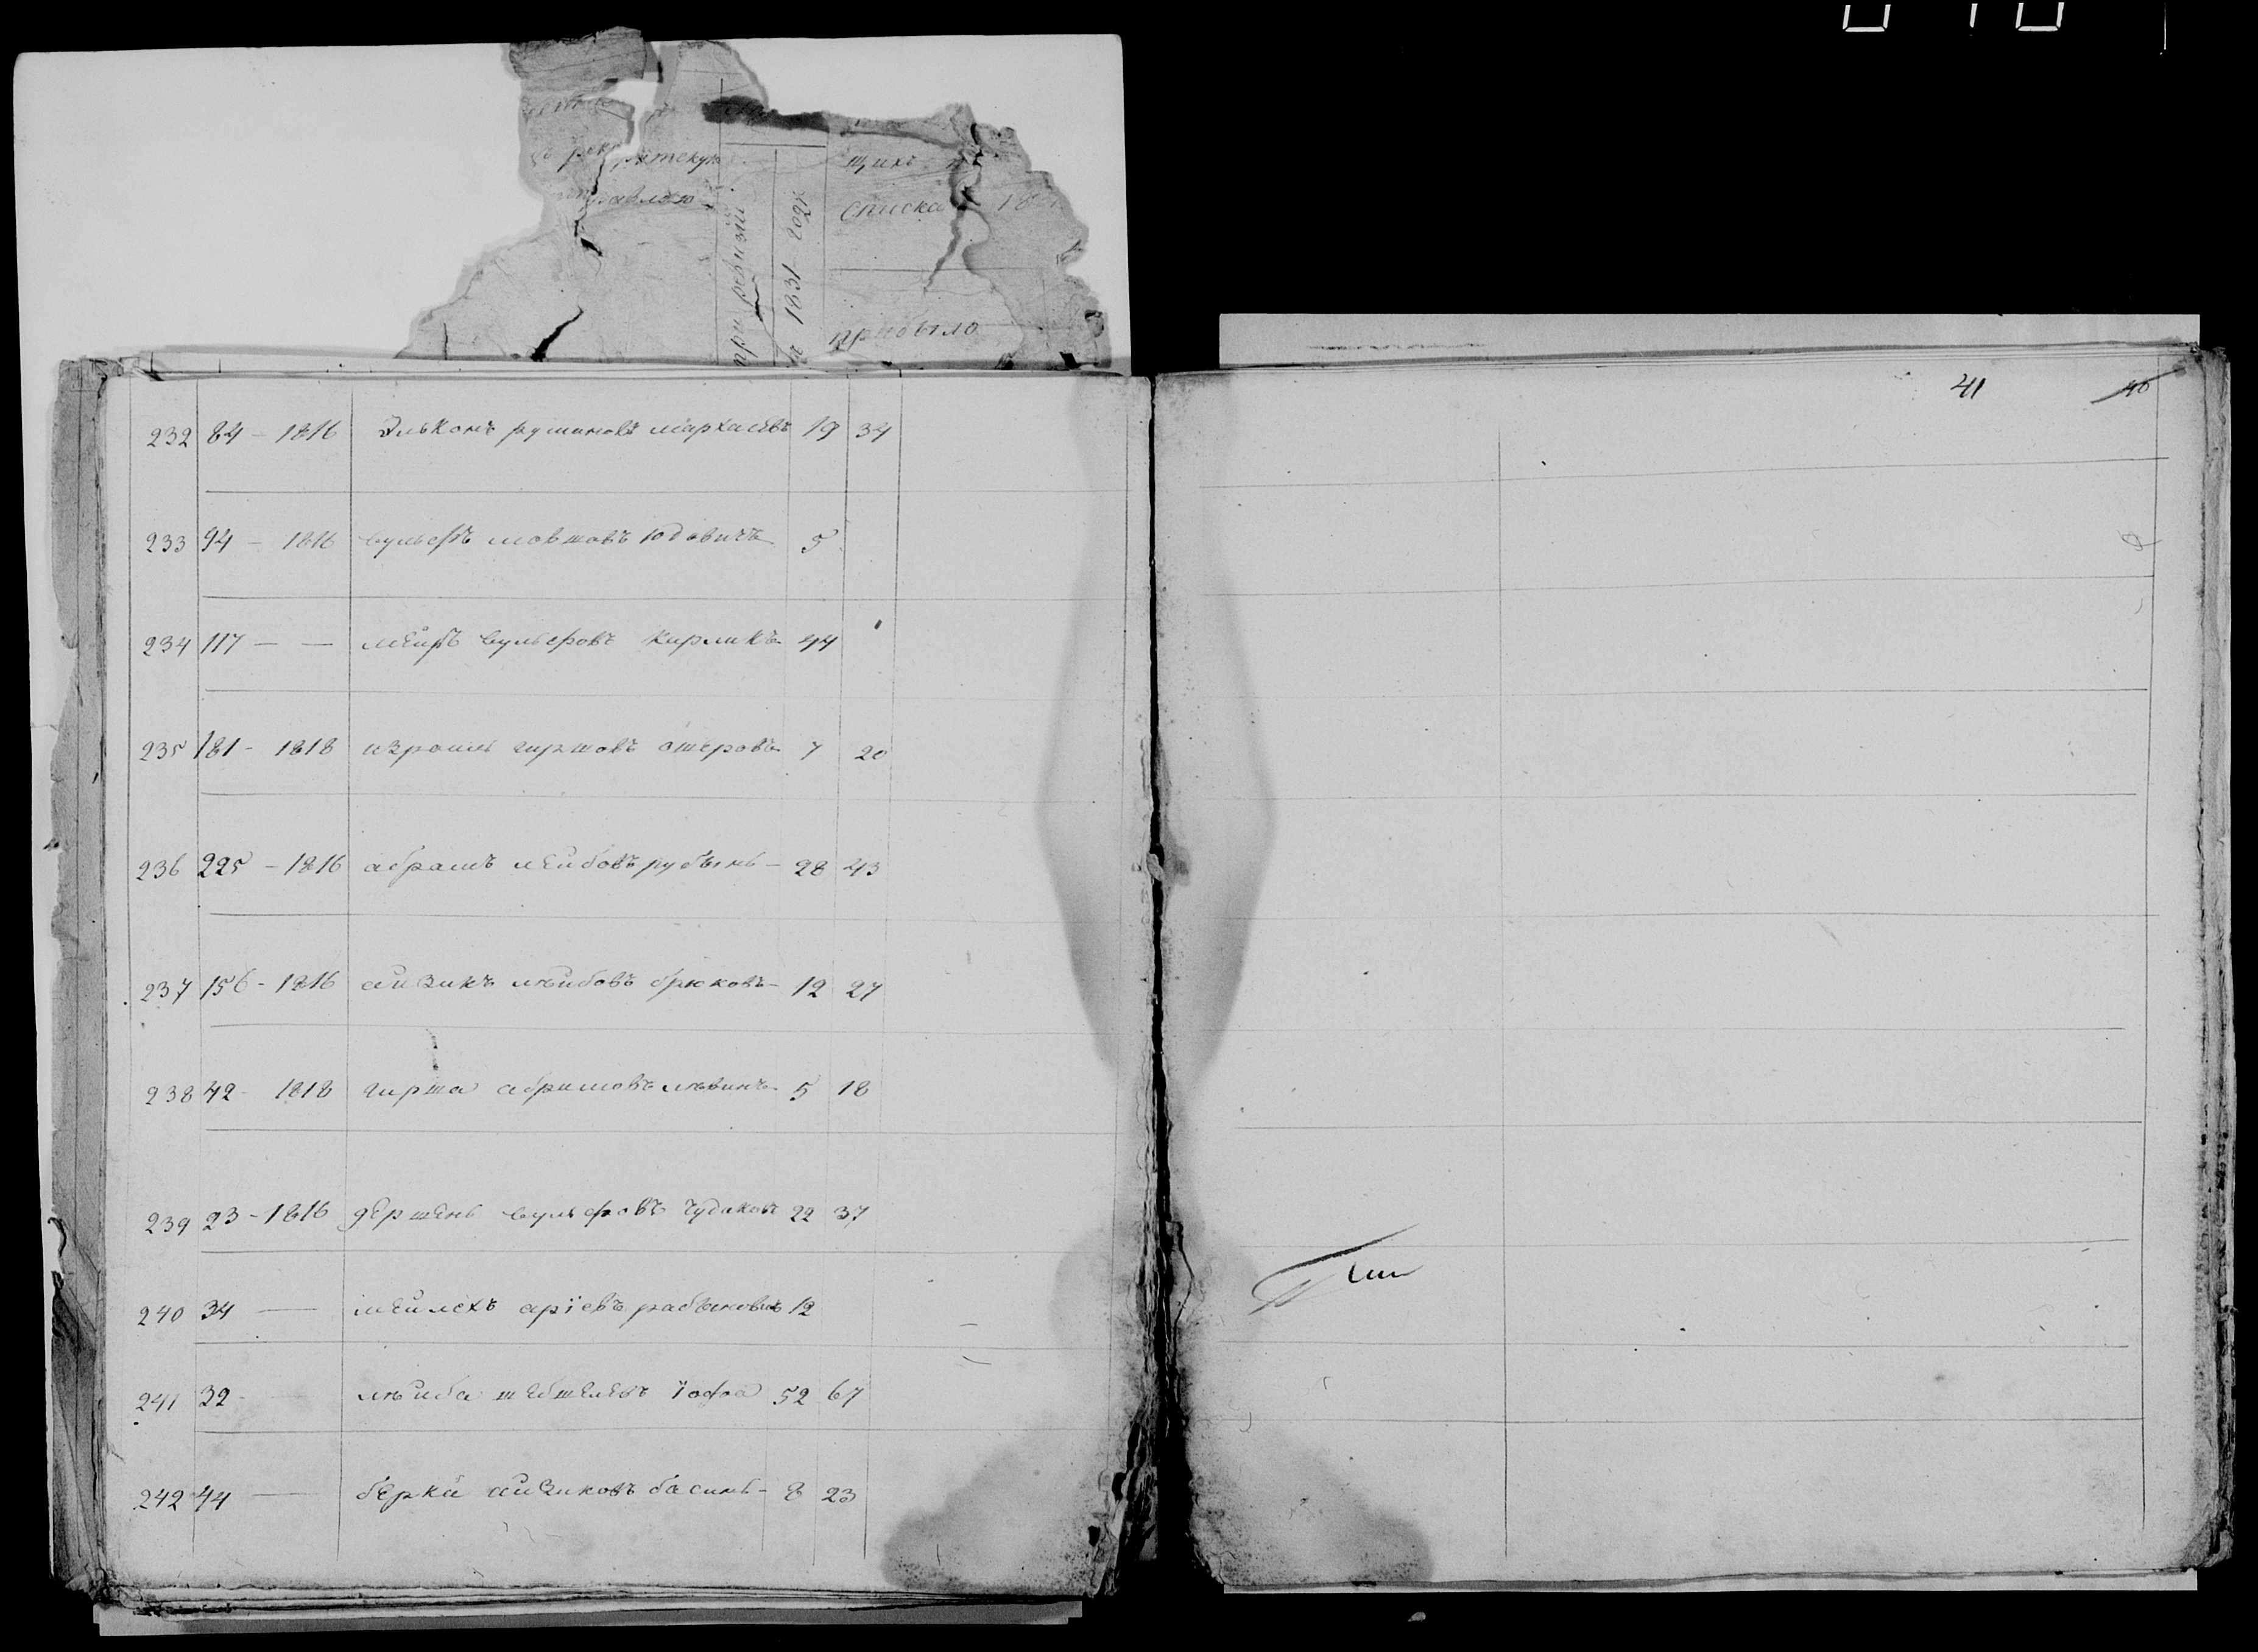 рекрутскую
при ревизіи
1831 года
щихъ
списка
прибыло
41 40
232 84 - 1816 Эльконъ румановъ мархасевъ 19 34
233 94 - 1816 вульфъ мовшовъ юдовичъ 5
234 117 — — меиръ вульфовъ Кирликъ 44
235 181 - 1818 израиль гиршовъ ошеровъ 7 20
236 225 - 1816 абрамъ лейбовъ рубынъ - 28 43
237 156 - 1816 айзикъ лѣибовъ брюковъ - 12 27
238 42 - 1818 гирша абрамовъ лѣвинъ 5 18
239 23 - 1816 гершень вульфовъ чудаковъ 22 37
240 34 — меилехъ аріевъ рабыновичъ 12
241 32 - лѣиба шебшелевъ Іофа 52 67
242 44 — берка айзиковъ басинъ - 8 23